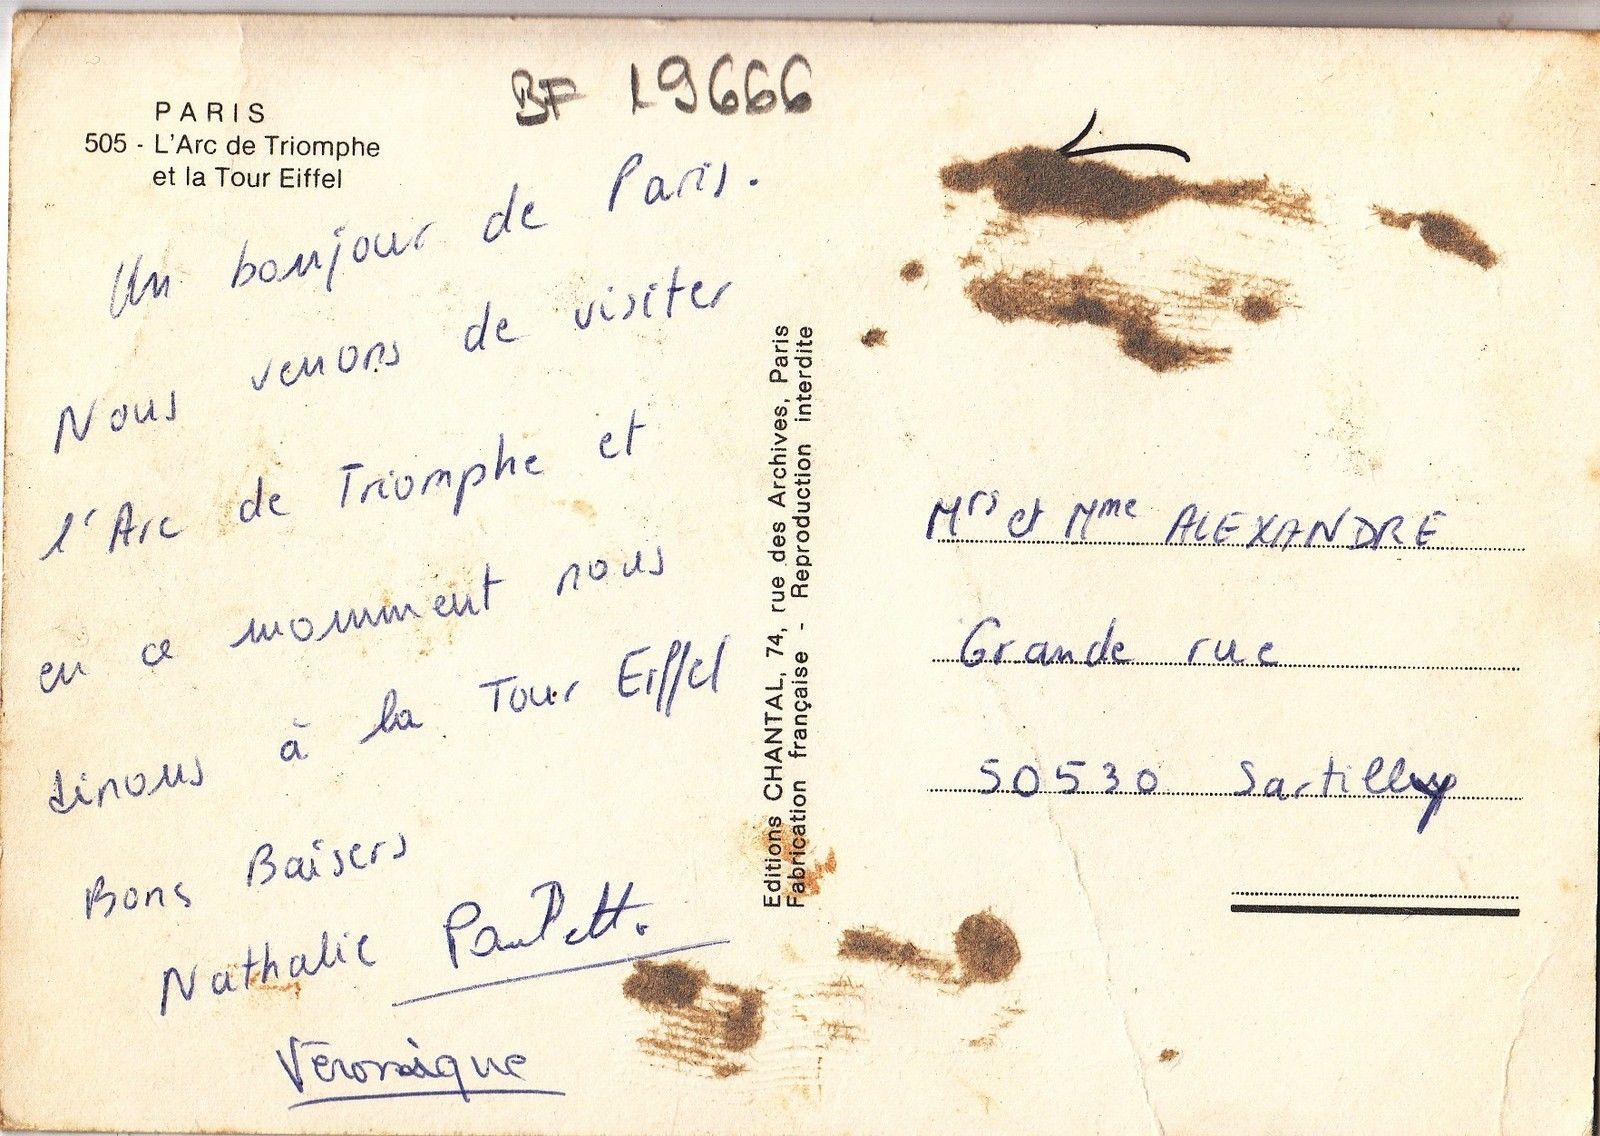 BF 19666
PARIS
505 - L'Arc de Triomphe
et la Tour Eiffel
Un bonjour de Paris.
Nous venons de visiter
l'Arc de Triomphe et
en ce momment nous
dinons à la Tour Eiffel
Bons Baisers
Nathalie Paulette
Véronique
Editions CHANTAL, 74, rue des Archives, Paris
Fabrication française - Reproduction interdite
Mrs et Mme ALEXANDRE
Grande rue
50530 Sartilly